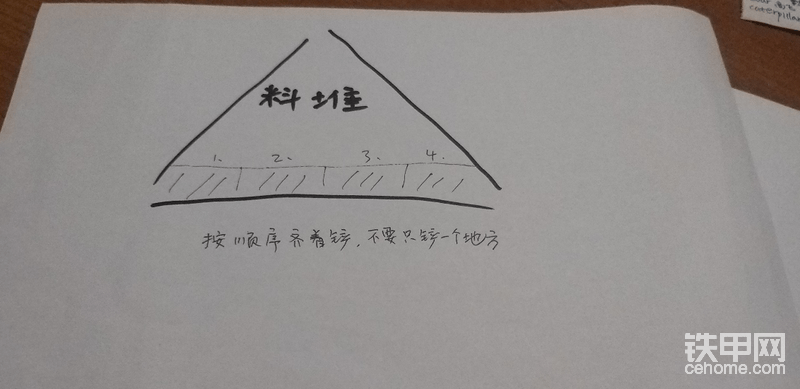 caterpillar
料堆
1. 2. 3. 4.
按顺序齐着铲，不要只铲一个地方
铁甲网
cehome.com